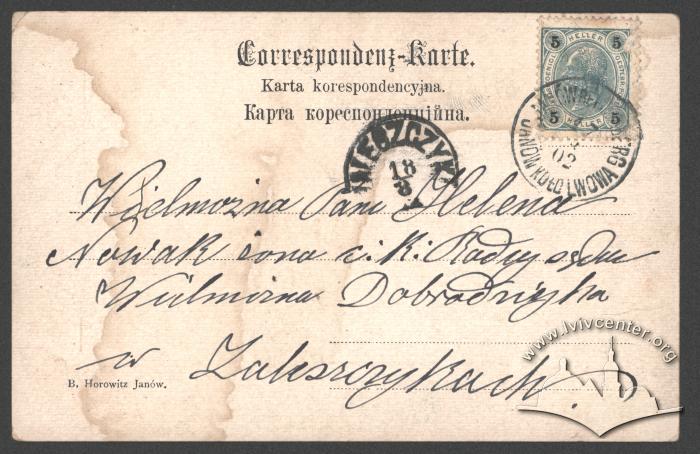 Correspondenz-Karte.
Karta korespondencyjna.
Карта кореспонденцїйна.
5 HELLER 5
5 5
JANÓW KOŁO LWOWA
02
18
8
Wielmożna Pani Helena
Nowak żona c. k. Radcy sądu
Wielmożna Dobrodziejka
w Zaleszczykach
B. Horowitz Janów.
© www.lvivcenter.org